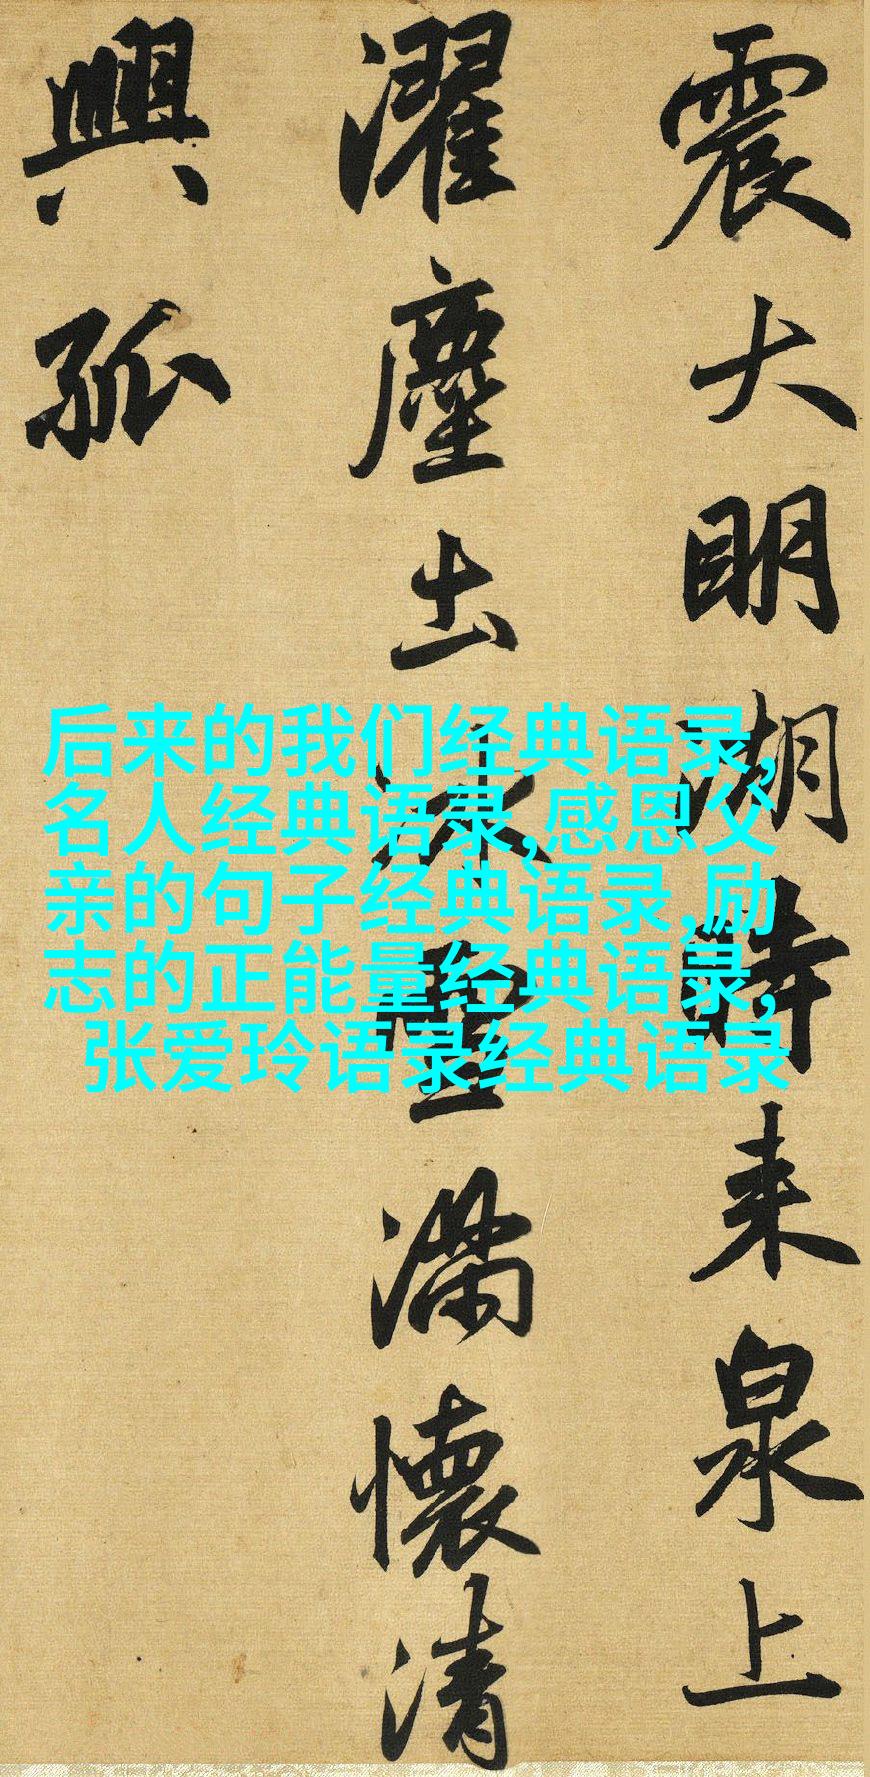 震大明湖時来泉上
濯塵出冰雪滿懷清
興孤
后来的我们经典语录,
名人经典语录,感恩父
亲的句子经典语录,励
志的正能量经典语录,
张爱玲语录经典语录